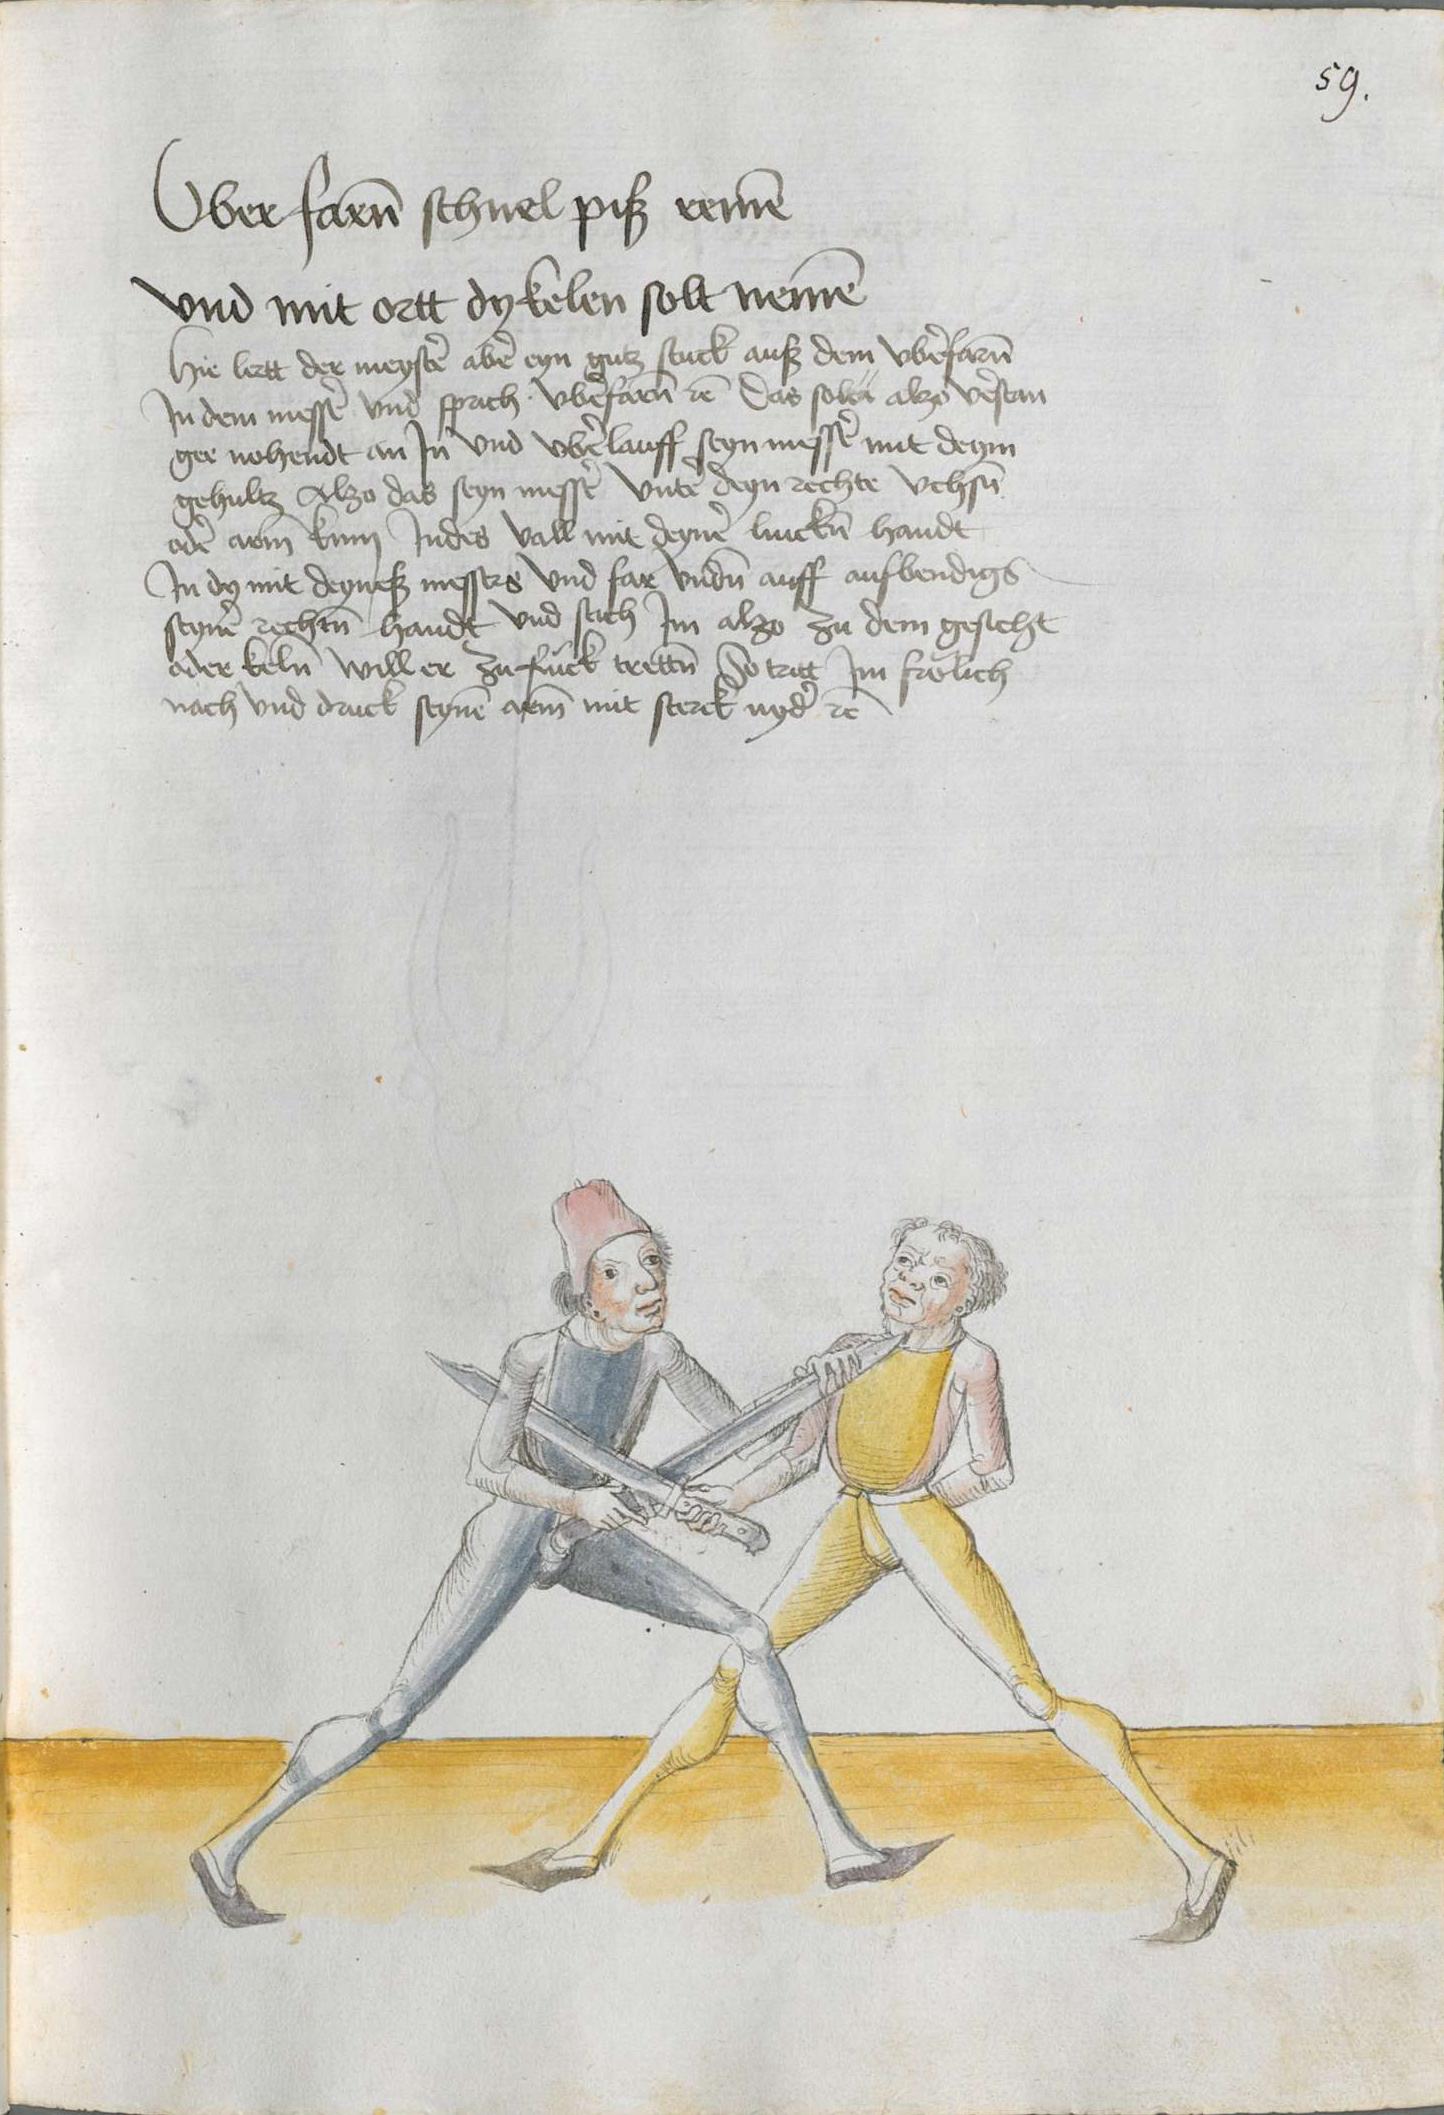 59.
Vber farn̄ schnel piß remē
vnd mit ortt dykelen solt nemē
Hie lertt der meystẽ abẽ eyn gutz stuck auß dem vbẽfarn̄
In dem messẽ vnd sprach vbẽfarn̄ rē Das soltu alzo vẽstan
gee nohendt an In̄ vnd vbẽlauff seyn messẽ mit deym
gehultz Alzo das seyn messẽ vntẽ deyn rechte vchsn̄
odẽ arm̄ kum Indes vall mit deynẽ linckn̄ handt
In dy mit deyneß messers vnd far vndn̄ auff außbendigs
seynẽ rechtn̄ handt vnd stich Im alzo zu dem gesicht
oder keln̄ will er zu ruck trettn̄ So tritt Im frolich
nach vnd druck seynē arm̄ mit sterck nydẽ rē